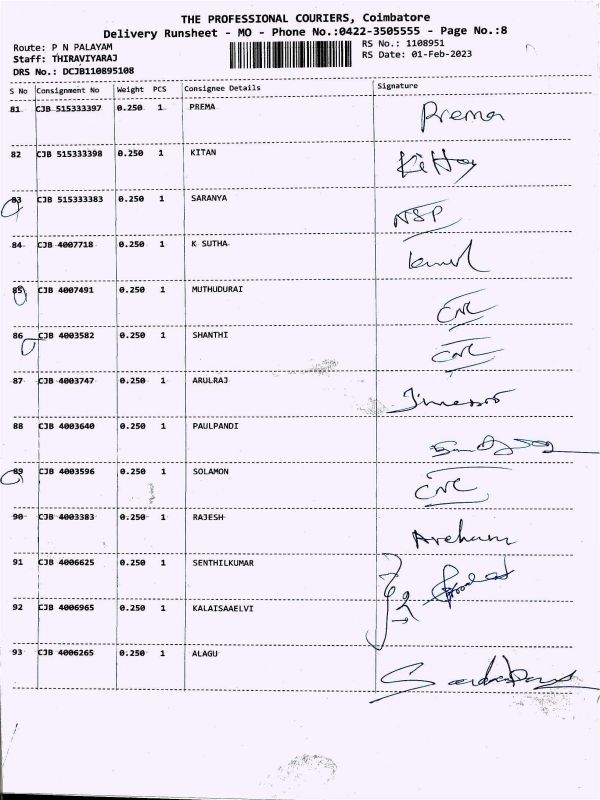 THE PROFESSIONAL COURIERS, Coimbatore
Delivery Runsheet - MO - Phone No.:0422-3505555 - Page No.:8
Route: P N PALAYAM RS No.: 1108951
Staff: THIRAVIYARAJ RS Date: 01-Feb-2023
DRS No.: DCJB110895108
S No Consignment No Weight PCS Consignee Details Signature
81 CJB 515333397 0.250 1 PREMA Prema
82 CJB 515333398 0.250 1 KITAN
83 CJB 515333383 0.250 1 SARANYA NSP
84 CJB 4007718 0.250 1 K SUTHA
85 CJB 4007491 0.250 1 MUTHUDURAI CNC
86 CJB 4003582 0.250 1 SHANTHI CNC
87 CJB 4003747 0.250 1 ARULRAJ
88 CJB 4003640 0.250 1 PAULPANDI
89 CJB 4003596 0.250 1 SOLAMON CNC
90 CJB 4003383 0.250 1 RAJESH
91 CJB 4006625 0.250 1 SENTHILKUMAR
92 CJB 4006965 0.250 1 KALAISAAELVI
93 CJB 4006265 0.250 1 ALAGU